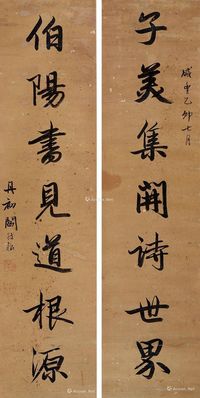 咸丰乙卯七月
子美集開詩世界
伯陽書見道根源
丹初閻敬銘